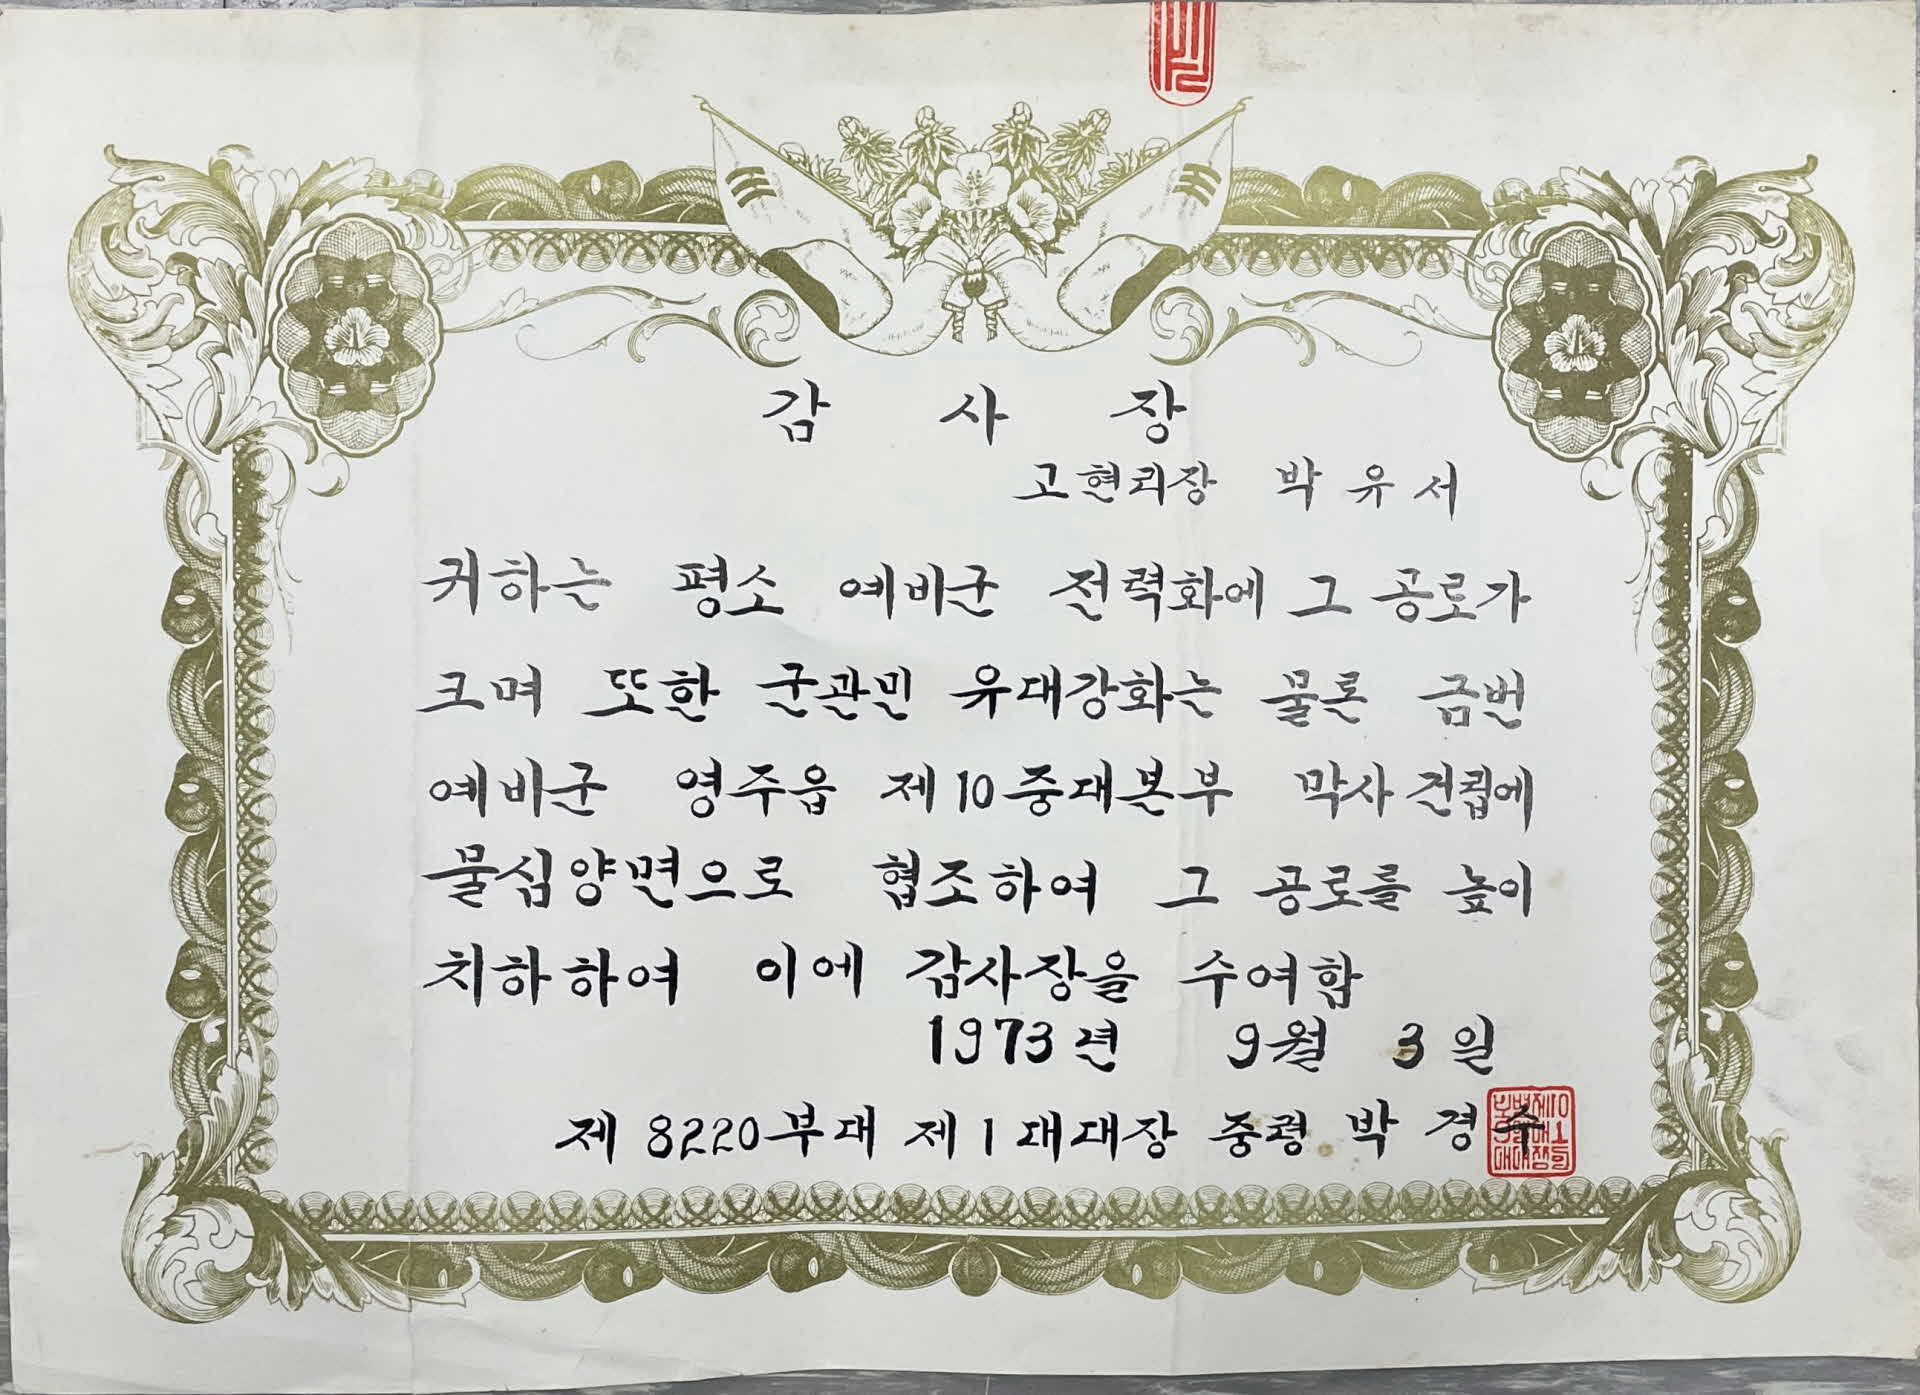 감 사 장
고현리장 박유서
귀하는 평소 예비군 전력화에 그 공로가
크며 또한 군관민 유대강화는 물론 금번
예비군 영주읍 제10중대본부 막사 건립에
물심양면으로 협조하여 그 공로를 높이
치하하여 이에 감사장을 수여함
1973년 9월 3일
제8220부대 제1대대장 중령 박경수